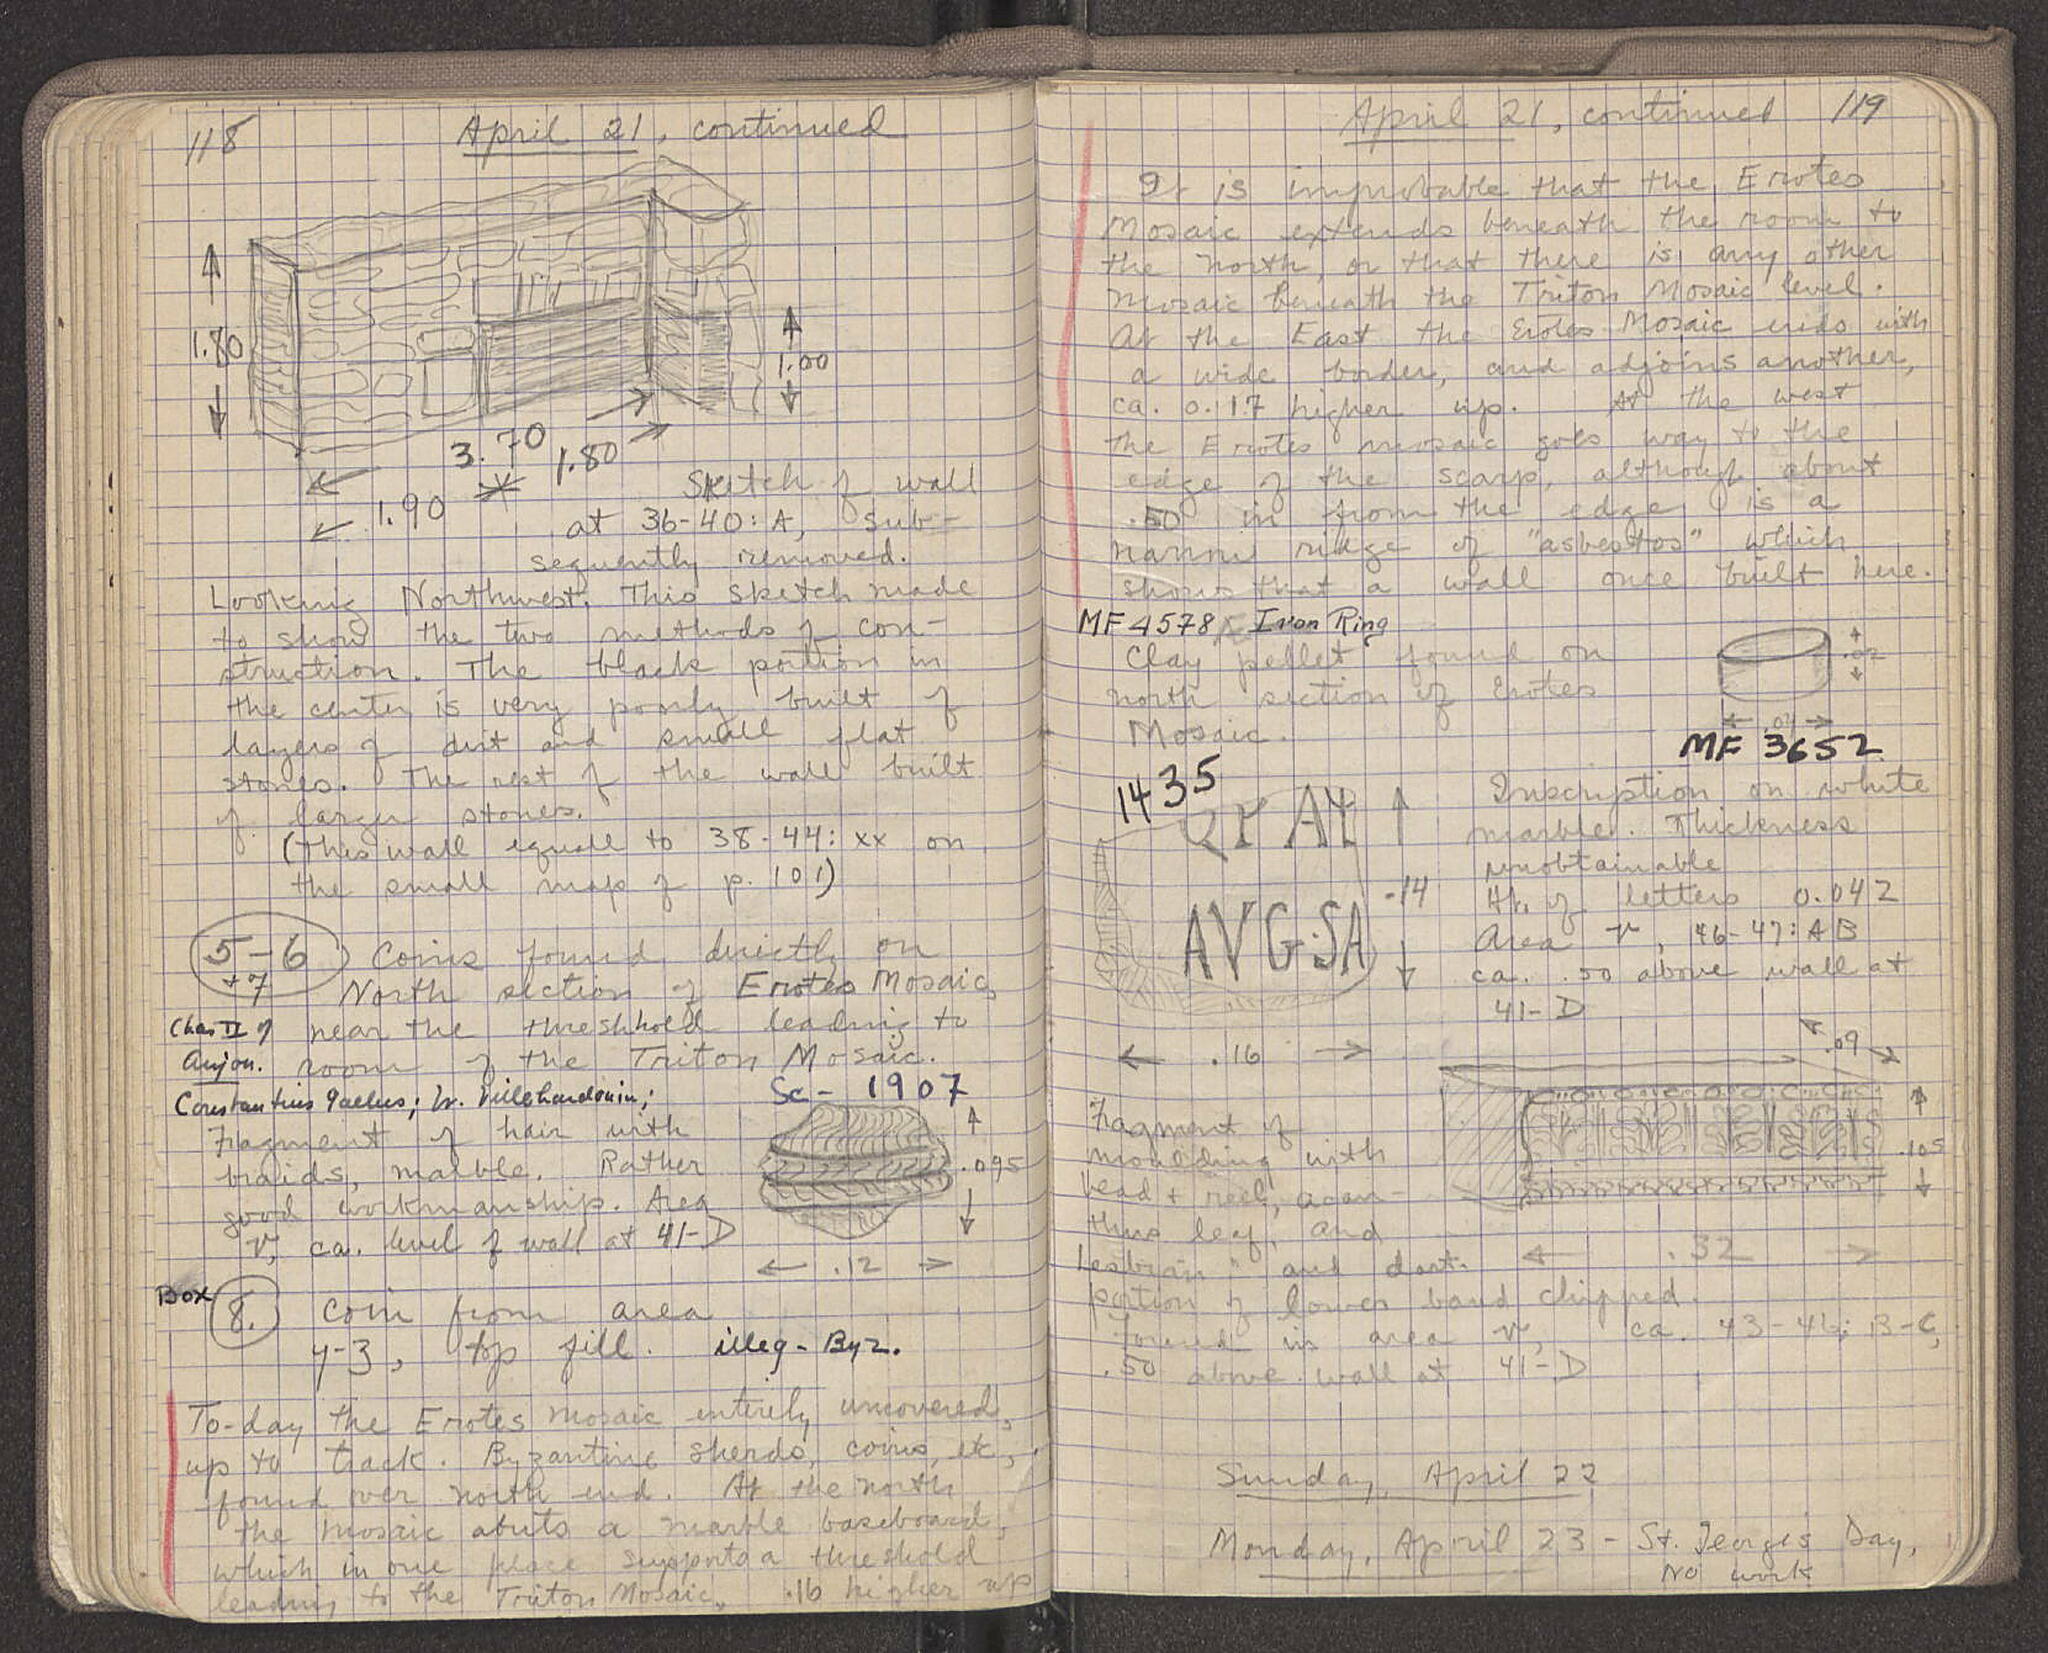 118
April 21, continued
1.80
1.00
3.70
1.80
1.90
Sketch of wall
at 36-40: A, sub-
sequently removed.
Looking Northwest. This sketch made
to show the two methods of con-
struction. The black portion in
the center is very poorly built of
layers of dirt and small flat
stones. The rest of the wall built
of larger stones.
(This wall equall to 38-44: xx on
the small map of p. 101)
5-6
+7
Coins found directly on
North section of Erotes Mosaic,
near the threshhold leading to
room of the Triton Mosaic.
Chas II of
Anjou.
Constantius Gallus; W. Villehardouin;
Sc- 1907
Fragment of hair with
braids, marble. Rather
good workmanship. Area
V, ca. level of wall at 41-D
.095
.12
Box
8. Coin from area
4-3, top fill. illeg- Byz.
To-day the Erotes Mosaic entirely uncovered,
up to track. Byzantine sherds, coins, etc,
found over north end. At the north
the mosaic abuts a marble baseboard,
which in one place supports a threshold
leading to the Triton Mosaic, .16 higher up
April 21, continued 119
It is improbable that the Erotes
Mosaic extends beneath the room to
the north, or that there is any other
mosaic beneath the Triton Mosaic level.
At the East the Erotes Mosaic ends with
a wide border, and adjoins another,
ca. 0.17 higher up. At the west
the Erotes mosaic goes way to the
edge of the scarp, although about
.50 in from the edge is a
narrow ridge of "asbestos" which
shows that a wall once built here.
MF 4578 Iron Ring
Clay pellet found on
north section of Erotes
Mosaic.
.02
MF 3652
1435
AVG·SA
.14
.16
Inscription on white
marble. Thickness
unobtainable
Ht. of letters 0.042
Area V, 46-47: AB
ca. .50 above wall at
41-D
.09
.105
.32
Fragment of
moulding with
bead + reel, acan-
thus leaf, and
Lesbian " and dart.
portion of lower band chipped.
Found in area V, ca. 43-46; B-C,
.50 above wall at 41-D
Sunday, April 22
Monday, April 23 - St. George's Day,
No work